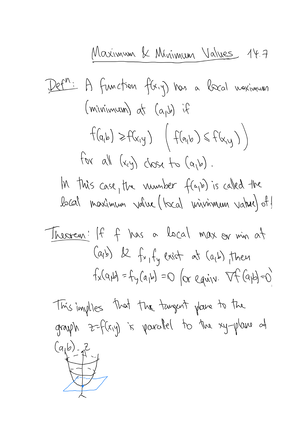 Maximum & Minimum Values 14.7
Defn: A function f(x,y) has a local maximum
(minimum) at (a,b) if
f(a,b) ⩾ f(x,y) ( f(a,b) ⩽ f(x,y) )
for all (x,y) close to (a,b).
In this case, the number f(a,b) is called the
local maximum value (local minimum value) of f
Theorem: If f has a local max or min at
(a,b) & fx, fy exist at (a,b), then
fx(a,b) = fy(a,b) = 0 (or equiv. ∇f(a,b) = 0)
This implies that the tangent plane to the
graph z=f(x,y) is parallel to the xy-plane at
(a,b). z